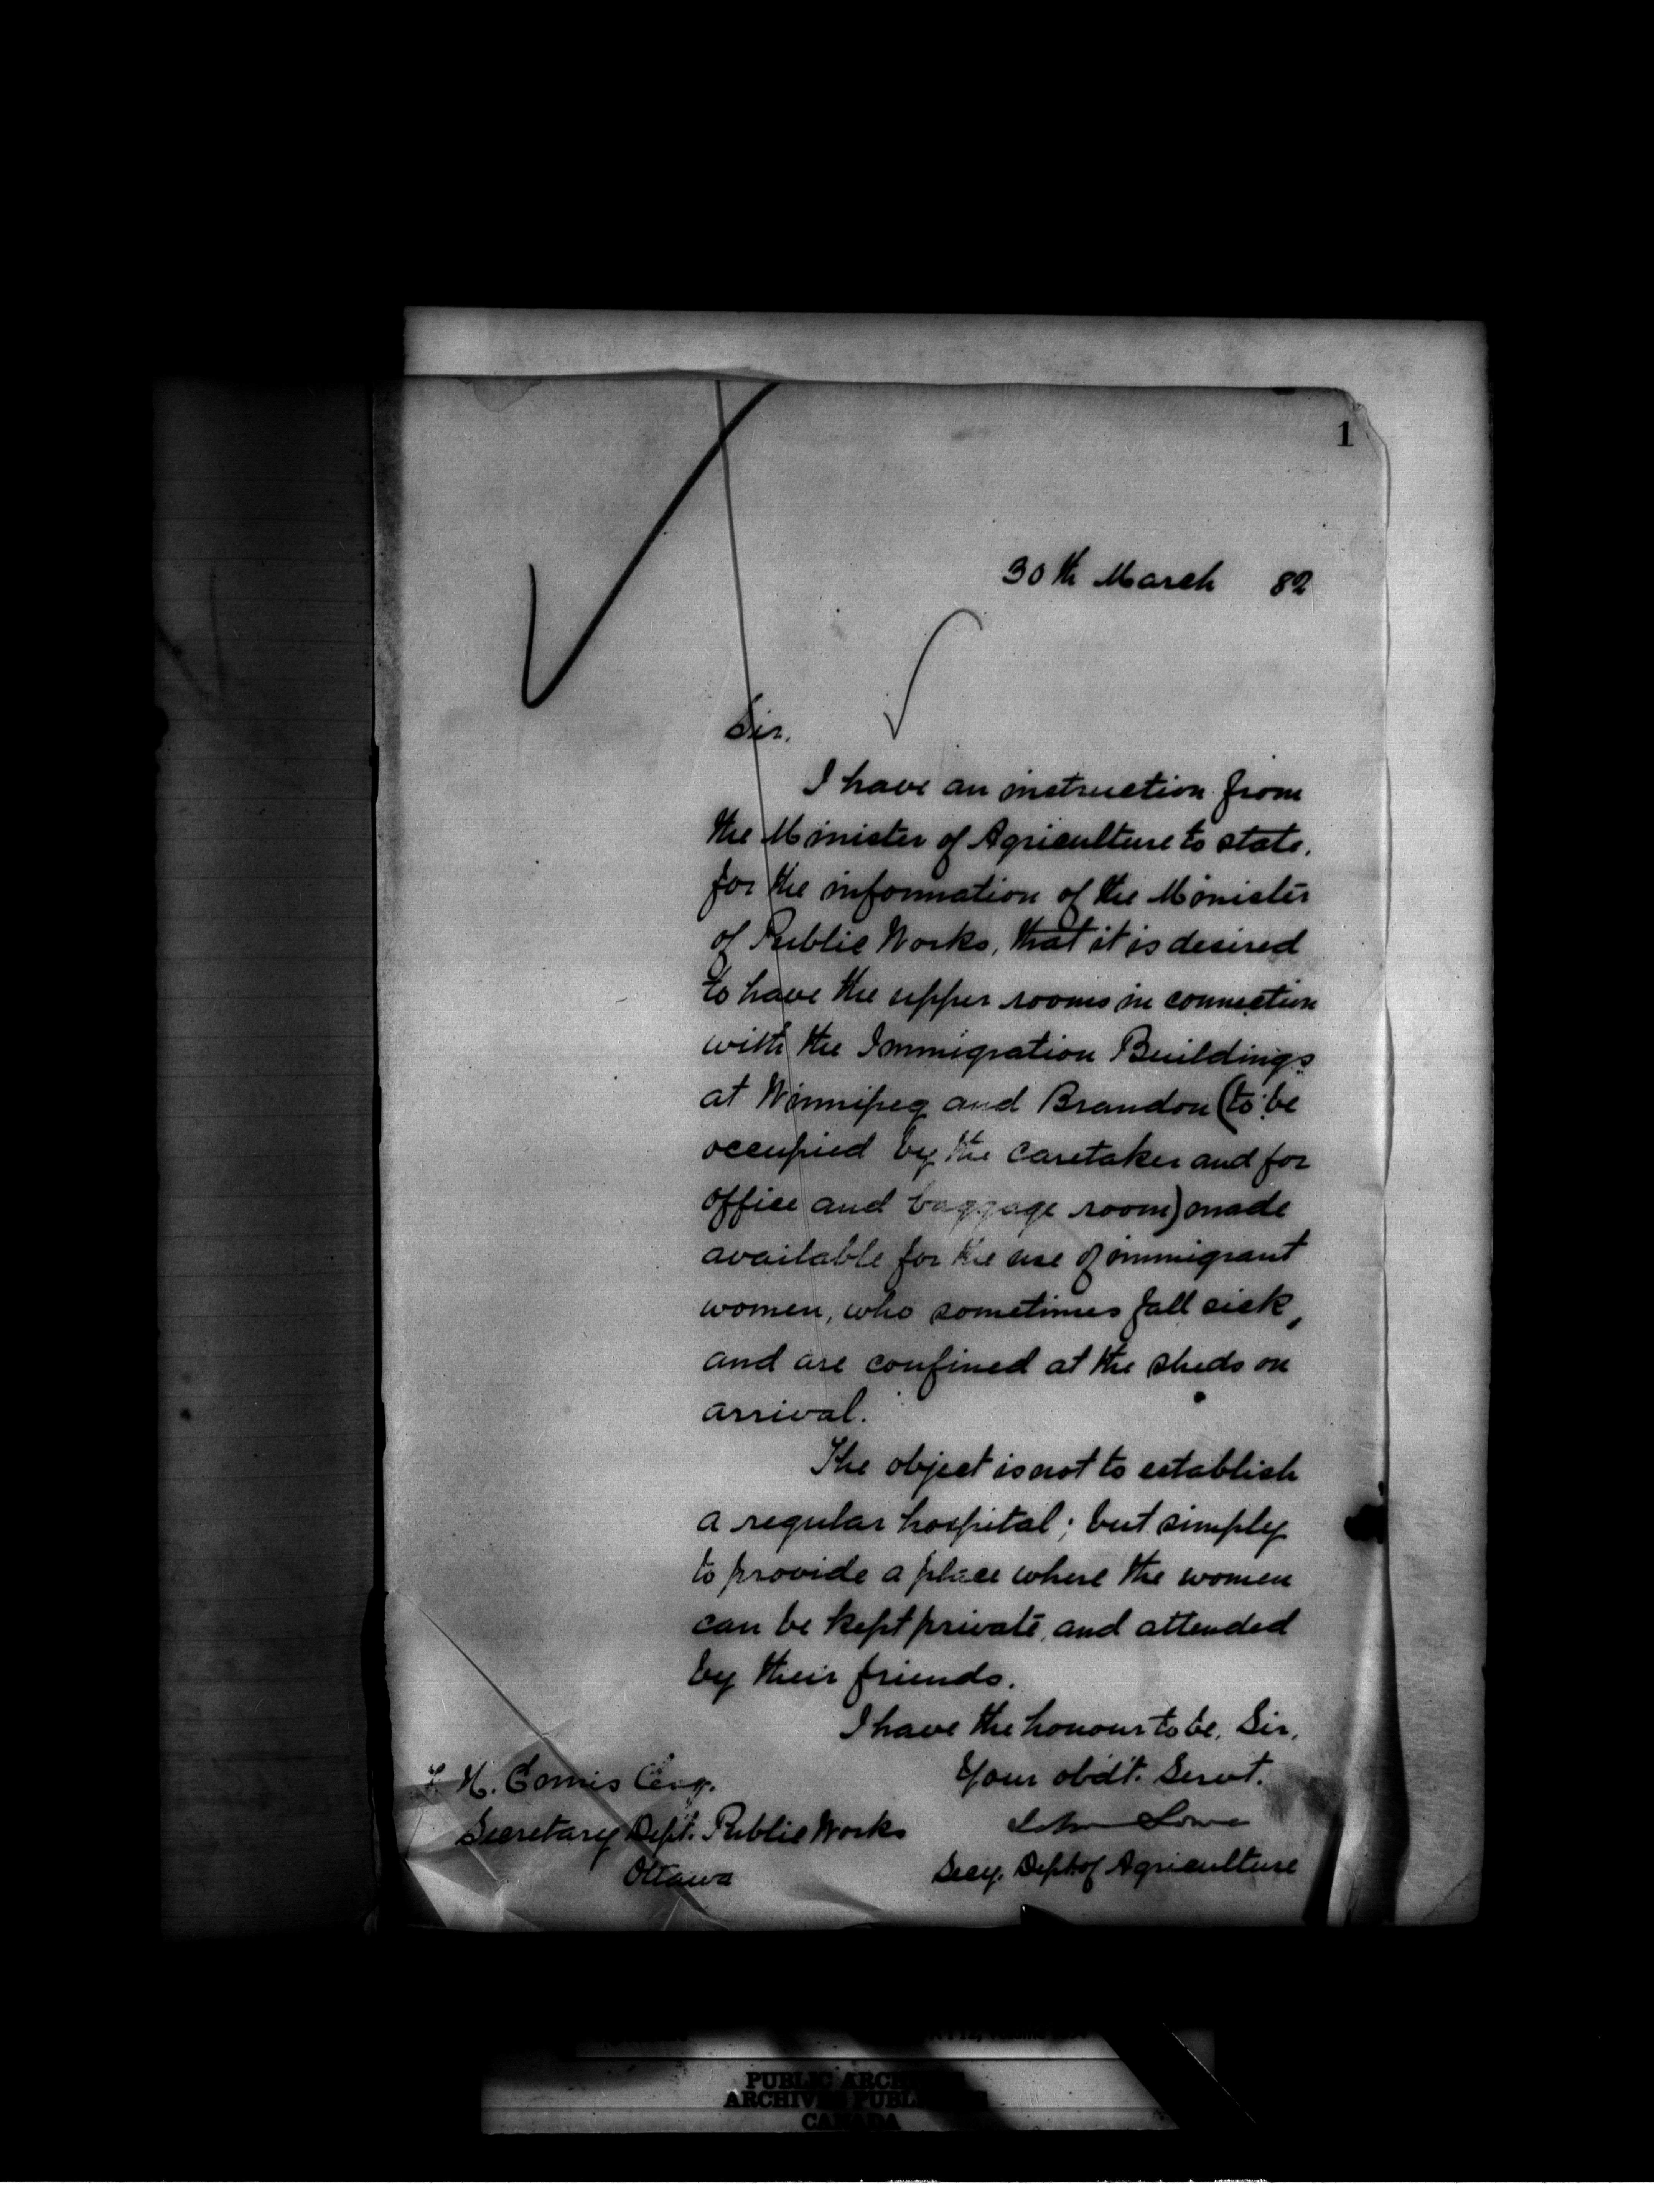 1
30th March 82
Sir,
I have an instruction from
the Minister of Agriculture to state,
for the information of the Minister
of Public Works, that it is desired
to have the upper rooms in connection
with the Immigration Buildings
at Winnipeg and Brandon (to be
occupied by the caretaker and for
office and baggage room) made
available for the use of immigrant
women, who sometimes fall sick,
and are confined at the sheds on
arrival.
The object is not to establish
a regular hospital; but simply
to provide a place where the women
can be kept private, and attended
by their friends.
I have the honour to be, Sir,
Your obdt. Servt.
John Lowe
Secy. Dept of Agriculture
F. H. Ennis Esq.
Secretary Dept. Public Works
Ottawa
PUBLIC ARCH
ARCHIVES PUBL
CANADA